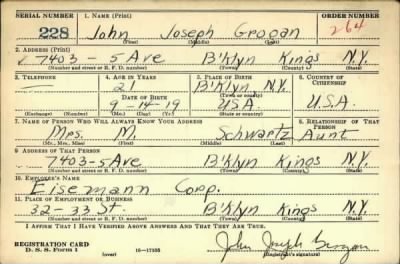 SERIAL NUMBER 1. NAME (Print) ORDER NUMBER
228 John Joseph Grogan 264
(First) (Middle) (Last)
2. ADDRESS (Print)
7403-5 Ave B'klyn Kings N.Y.
(Number and street or R. F. D. number) (Town) (County) (State)
3. TELEPHONE 4. AGE IN YEARS 5. PLACE OF BIRTH 6. COUNTRY OF CITIZENSHIP
— 21 B'klyn N.Y.
DATE OF BIRTH (Town or county)
9-14-19 U.S.A. U.S.A.
(Exchange) (Number) (Mo.) (Day) (Yr.) (State or country)
7. NAME OF PERSON WHO WILL ALWAYS KNOW YOUR ADDRESS 8. RELATIONSHIP OF THAT PERSON
Mrs. M. Schwartz Aunt
(Mr., Mrs., Miss) (First) (Middle) (Last)
9. ADDRESS OF THAT PERSON
7403-5 Ave B'klyn Kings N.Y.
(Number and street or R. F. D. number) (Town) (County) (State)
10. EMPLOYER'S NAME
Eisemann Corp.
11. PLACE OF EMPLOYMENT OR BUSINESS
32-33 St. B'klyn Kings N.Y.
(Number and street or R. F. D. number) (Town) (County) (State)
I AFFIRM THAT I HAVE VERIFIED ABOVE ANSWERS AND THAT THEY ARE TRUE.
REGISTRATION CARD
D. S. S. Form 1 (over) 16—17105 John Joseph Grogan
(Registrant's signature)